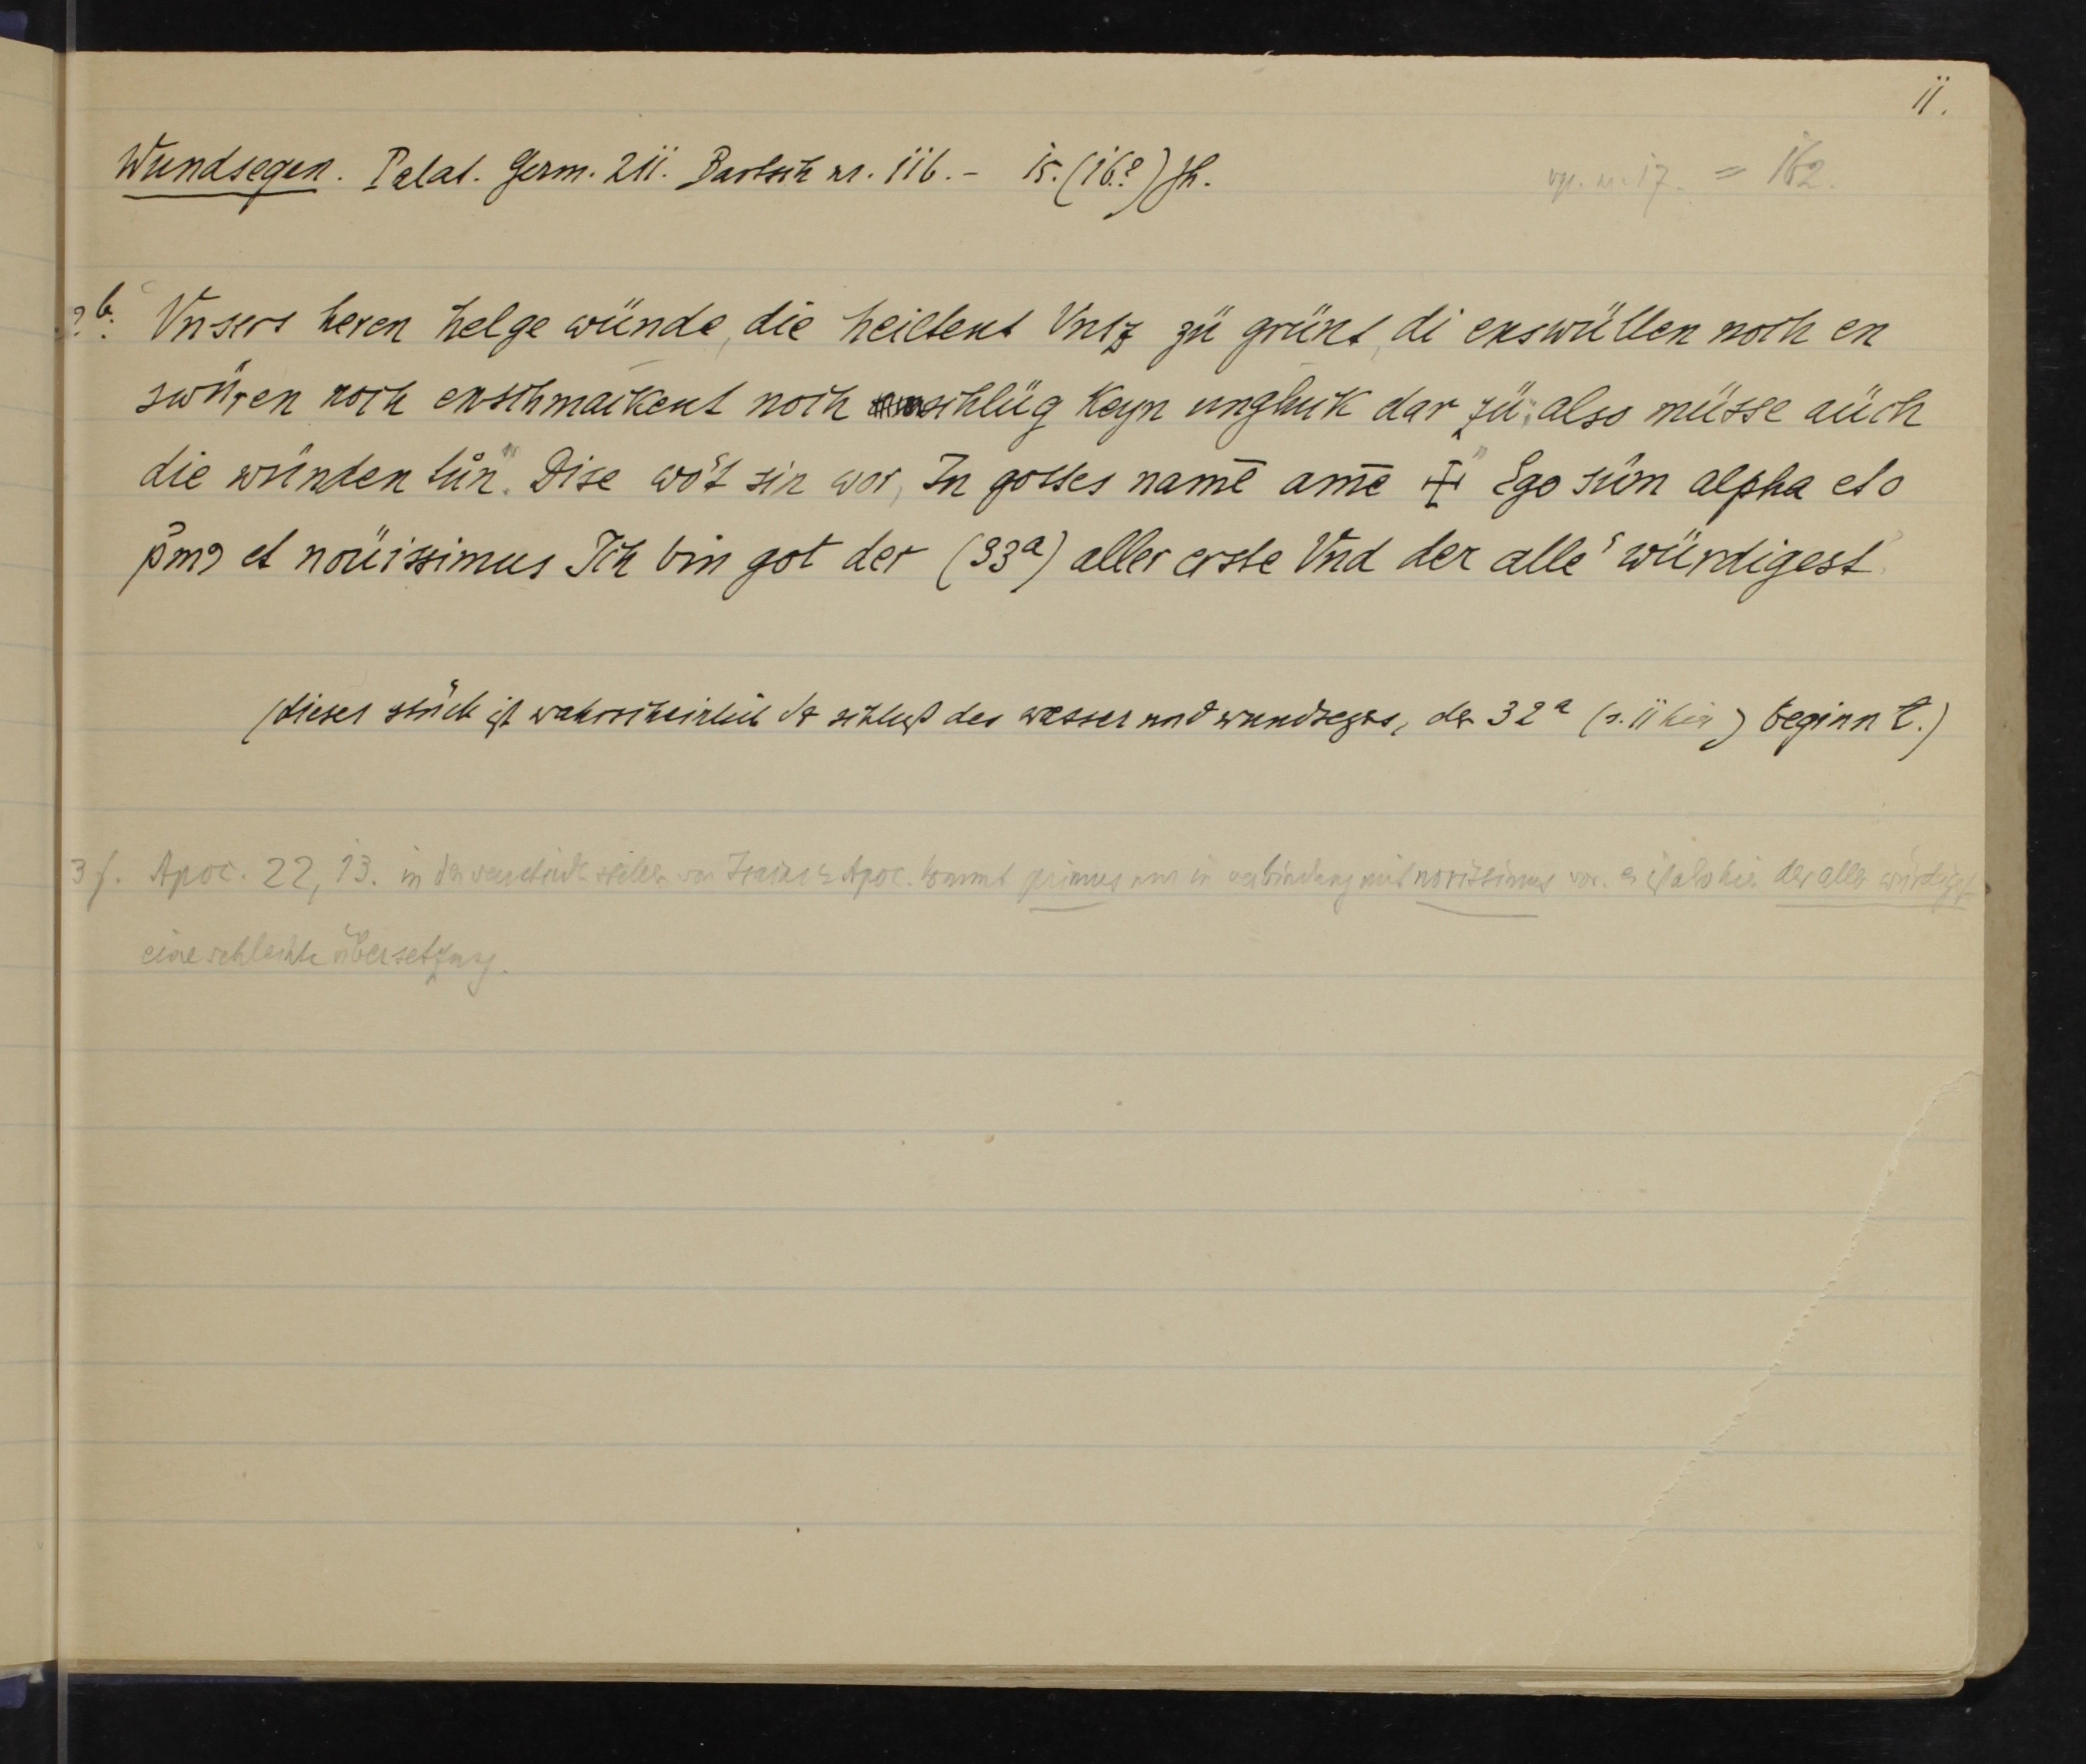 11.
Wundsegen. Palat. Germ. 211. Bartsch nr. 116. - 15. (16.?) Jh. vgl. nr. 17. = 162.
2b. Vnsers heren helge wünde, die heiltent Vntz zü grünt, di enswüllen noch en
swüren noch enschmackent noch schlüg keyn ungluck dar zü: also müsse aüch
die wünden tůn". Dise wo᷒t sin wor, In gottes namē amē ☩" Ego süm alpha et o
p̄mꝯ et noüissimus Ich bin got der (33a) aller erste Vnd der alle᷒ würdigest.
(dieses stück ist wahrscheinlich der schluß des wasser und wundsegens, der 32a (s. 11 hier) beginnt.)
3 f. Apoc. 22, 13. in der stellen von Isaias & Apoc. kommt primus nur in verbindung mit novissimus vor. es ist also hier der aller würdigst
eine schlechte übersetzung.